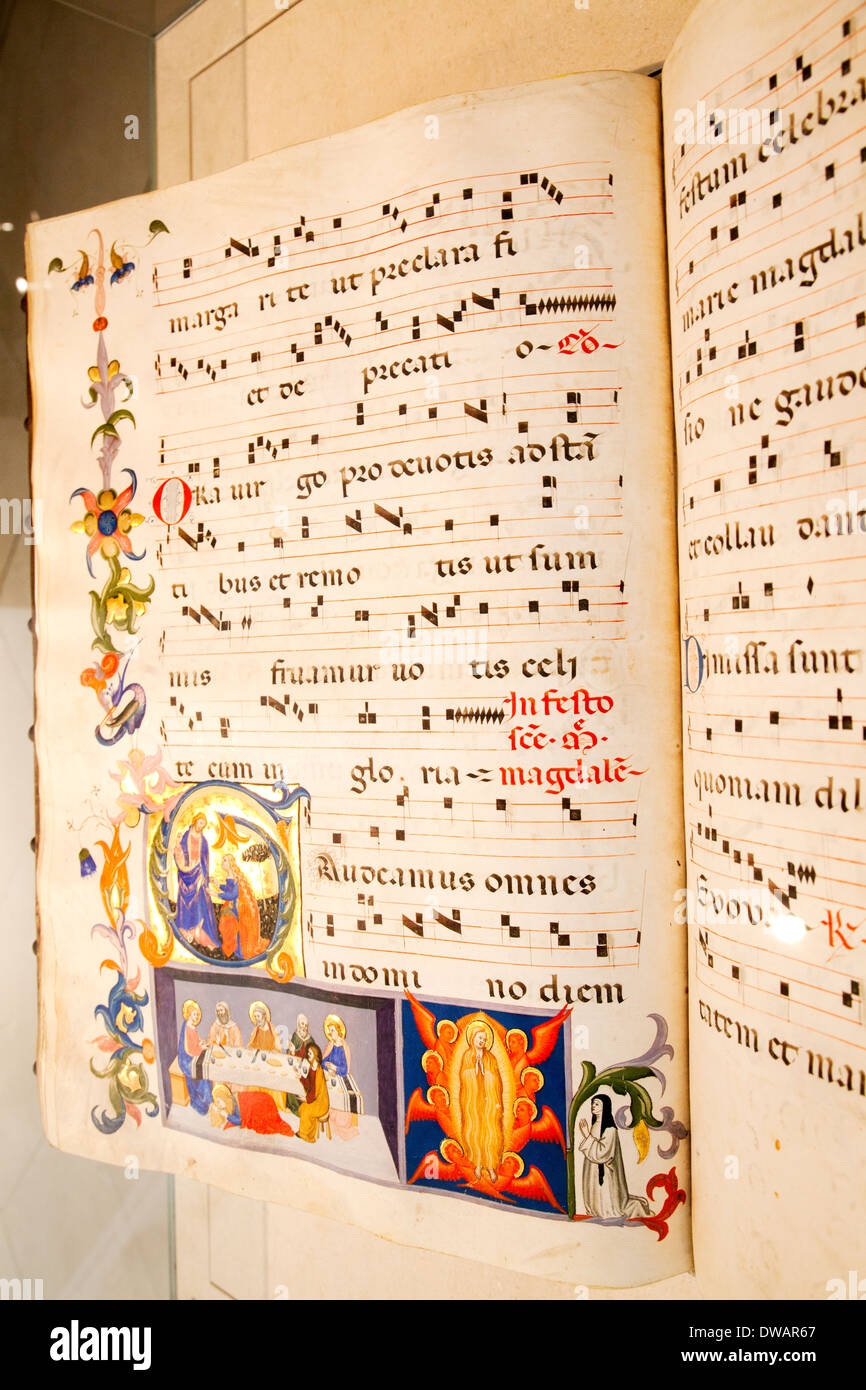 marga ri te ut preclara fi
et de precati o- Co-
ORa uir go pro deuotis ad stā
ti bus et remo tis ut sum
mis fruamur uo tis celi
te cum in glo ria In festo
sce. M.
magdale-
Gaudeamus omnes
in domi no diem
festum celebra
marie magdal
sio ne gaude
et collau dant
Dimissa sunt
quoniam dil
Euou
tatem et mar
alamy
Image ID: DWAR67
www.alamy.com